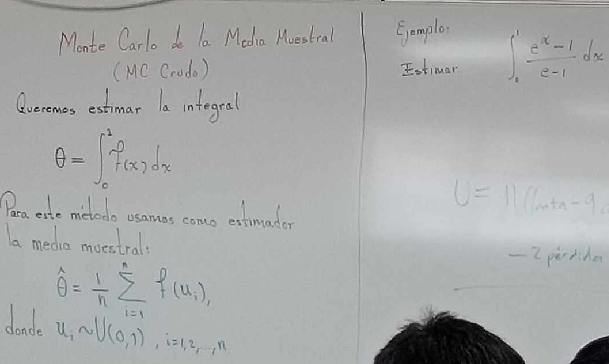 Monte Carlo de la Media Muestral
(MC Crudo)
Queremos estimar la integral
θ = ∫₀¹ f(x) dx
Para este método usamos como estimador
la media muestral:
θ̂ = 1/n ∑ᵢ₌₁ⁿ f(uᵢ),
donde uᵢ ~ U(0,1), i=1,2,...,n
Ejemplo:
Estimar ∫₀¹ (eˣ - 1)/(e - 1) dx
U = 11
- 2 pérdida